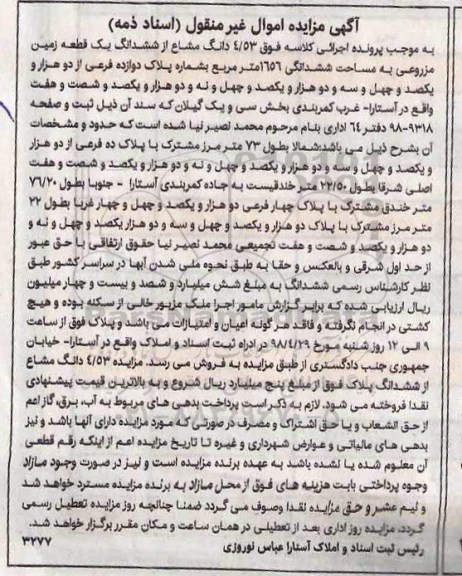 آگهی مزایده اموال غیر منقول (اسناد ذمه)
به موجب پرونده اجرائی کلاسه فوق ٤/٥٣ دانگ مشاع از ششدانگ یک قطعه زمین
مزروعی به مساحت ششدانگی ١٦٥٦متر مربع بشماره پلاک دوازده فرعی از دو هزار و
یکصد و چهل و سه و دو هزار و یکصد و چهل و نه و دو هزار و یکصد و شصت و هفت
واقع در آستارا- غرب کمربندی بخش سی و یک گیلان که سند آن ذیل ثبت و صفحه
٩٣١٨-٩٨ دفتر ٦٤ اداری بنام مرحوم محمد نصیر نیا شده است که حدود و مشخصات
آن بشرح ذیل می باشد:شمالا بطول ٧٣ متر مرز مشترک با پلاک ده فرعی از دو هزار
و یکصد و چهل و سه و دو هزار و یکصد و چهل و نه و دو هزار و یکصد و شصت و هفت
اصلی شرقا بطول ٢٢/٥٠ متر خندقیست به جاده کمربندی آستارا - جنوبا بطول ٧٦/٢٠
متر خندق مشترک با پلاک چهار فرعی دو هزار و یکصد و چهل و چهار غربا بطول ٢٢
متر مرز مشترک با پلاک دو هزار و یکصد و چهل و سه و دو هزار یکصد و چهل و نه و
دو هزار و یکصد و شصت و هفت تجمیعی محمد نصیر نیا حقوق ارتفاقی با حق عبور
از حد اول شرقی و بالعکس و حقا به طبق نحوه ملی شدن آبها در سراسر کشور طبق
نظر کارشناس رسمی ششدانگ به مبلغ شش میلیارد و شصد و بیست و چهار میلیون
ریال ارزیابی شده که برابر گزارش مامور اجرا ملک مزبور خالی از سکنه بوده و هیچ
کشتی در انجام نگرفته و فاقد هر گونه اعیان و امتیازات می باشد و پلاک فوق از ساعت
٩ الی ١٢ روز شنبه مورخ ٩٨/٤/٢٩ در اداره ثبت اسناد و املاک واقع در آستارا- خیابان
جمهوری جنب دادگستری از طبق مزایده به فروش می رسد. مزایده ٤/٥٣ دانگ مشاع
از ششدانگ پلاک فوق از مبلغ پنج میلیارد ریال شروع و به بالاترین قیمت پیشنهادی
نقدا فروخته می شود. لازم به ذکر است پرداخت بدهی های مربوط به آب، برق، گاز اعم
از حق انشعاب و یا حق اشتراک و مصرف در صورتی که مورد مزایده دارای آنها باشد و نیز
بدهی های مالیاتی و عوارض شهرداری و غیره تا تاریخ مزایده اعم از اینکه رقم قطعی
آن معلوم شده یا نشده باشد به عهده برنده مزایده است و نیز در صورت وجود مازاد
وجوه پرداختی بابت هزینه های فوق از محل مازاد به برنده مزایده مسترد خواهد شد
و نیم عشر و حق مزایده نقدا وصول می گردد ضمنا چنانچه روز مزایده تعطیل رسمی
گردد، مزایده روز اداری بعد از تعطیلی در همان ساعت و مکان مقرر برگزار خواهد شد.
رئیس ثبت اسناد و املاک آستارا عباس نوروزی ٣٢٧٧